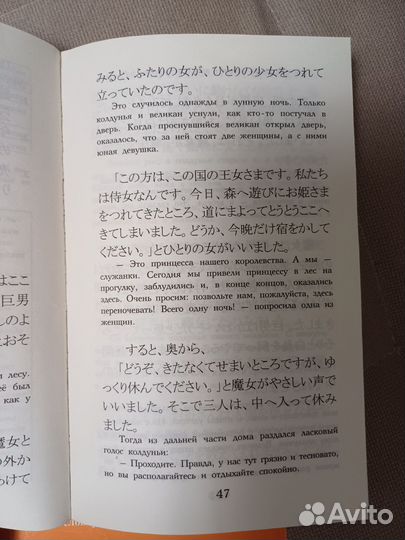 みると、ふたりの女が、ひとりの少女をつれて
立っていたのです。
Это случилось однажды в лунную ночь. Только
колдунья и великан уснули, как кто-то постучал в
дверь. Когда проснувшийся великан открыл дверь,
оказалось, что за ней стоят две женщины, а с ними
юная девушка.
「この方は、この国の王女さまです。私たち
は侍女なんです。今日、森へ遊びにお姫さま
をつれてきたところ、道にまよってとうとうここへ
きてしまいました。どうか、今晩だけ宿をかして
ください。」とひとりの女がいいました。
— Это принцесса нашего королевства. А мы —
служанки. Сегодня мы привели принцессу в лес на
прогулку, заблудились и, в конце концов, оказались
здесь. Очень просим: позвольте нам, пожалуйста, здесь
переночевать! Всего одну ночь! — попросила одна из
женщин.
すると、奥から、
「どうぞ、きたなくてせまいところですが、ゆ
っくり休んでください。」と魔女がやさしい声で
いいました。そこで三人は、中へ入って休み
ました。
Тогда из дальней части дома раздался ласковый
голос колдуньи:
— Проходите. Правда, у нас тут грязно и тесновато,
но вы располагайтесь и отдыхайте спокойно.
47
はここ
巨男
しのよ
とおそ
лесу.
её был
как у
魔女と
の外か
らけて
Avito